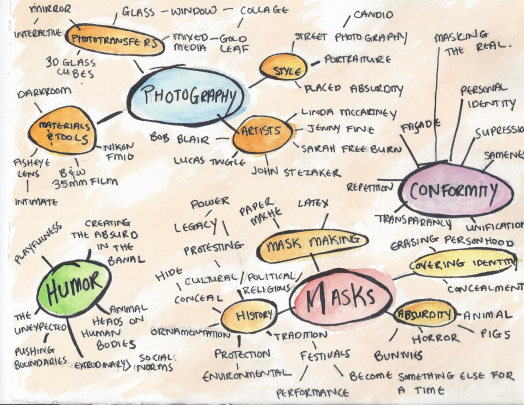 MIRROR
INTERACTIVE
PHOTOTRANSFERS
GLASS - WINDOW - COLLAGE
MIXED - GOLD
MEDIA LEAF
3D GLASS
CUBES
CANDID
STREET PHOTOGRAPHY
STYLE
PORTRAITURE
PLACED ABSURDITY
PHOTOGRAPHY
DARKROOM
MATERIALS
& TOOLS
FISHEYE
LENS
INTIMATE
B&W
35MM FILM
NIKON
FM10
ARTISTS
BOB BLAIR
LUCAS
LINDA McCARTNEY
JENNY FINE
SARAH FREEBURN
JOHN STEZAKER
MASKING
THE REAL.
PERSONAL
IDENTITY
FAÇADE
SUPRESSIO
SAMENES
REPETITION
CONFORMITY
TRANSPARANCY
UNIFICATION
HUMOR
PLAYFULNESS
CREATING
THE ABSURD
IN THE
BANAL
THE
UNEXPECTED
PUSHING
BOUNDARIES
ANIMAL
HEADS ON
HUMAN
BODIES
SOCIAL
NORMS
MASKS
MASK MAKING
PAPER
MACHE
LATEX
HISTORY
POWER
LEGACY
PROTESTING
HIDE
CONCEAL
CULTURAL/POLITICAL/
RELIGIOUS
ORNAMENTATION
TRADITION
PROTECTION
ENVIRONMENTAL
FESTIVALS
PERFORMANCE
ERASING PERSONHOOD
COVERING IDENTITY
CONCEALMENT
ABSURDITY
ANIMAL
PIGS
HORROR
BUNNIES
BECOME SOMETHING ELSE FOR
A TIME